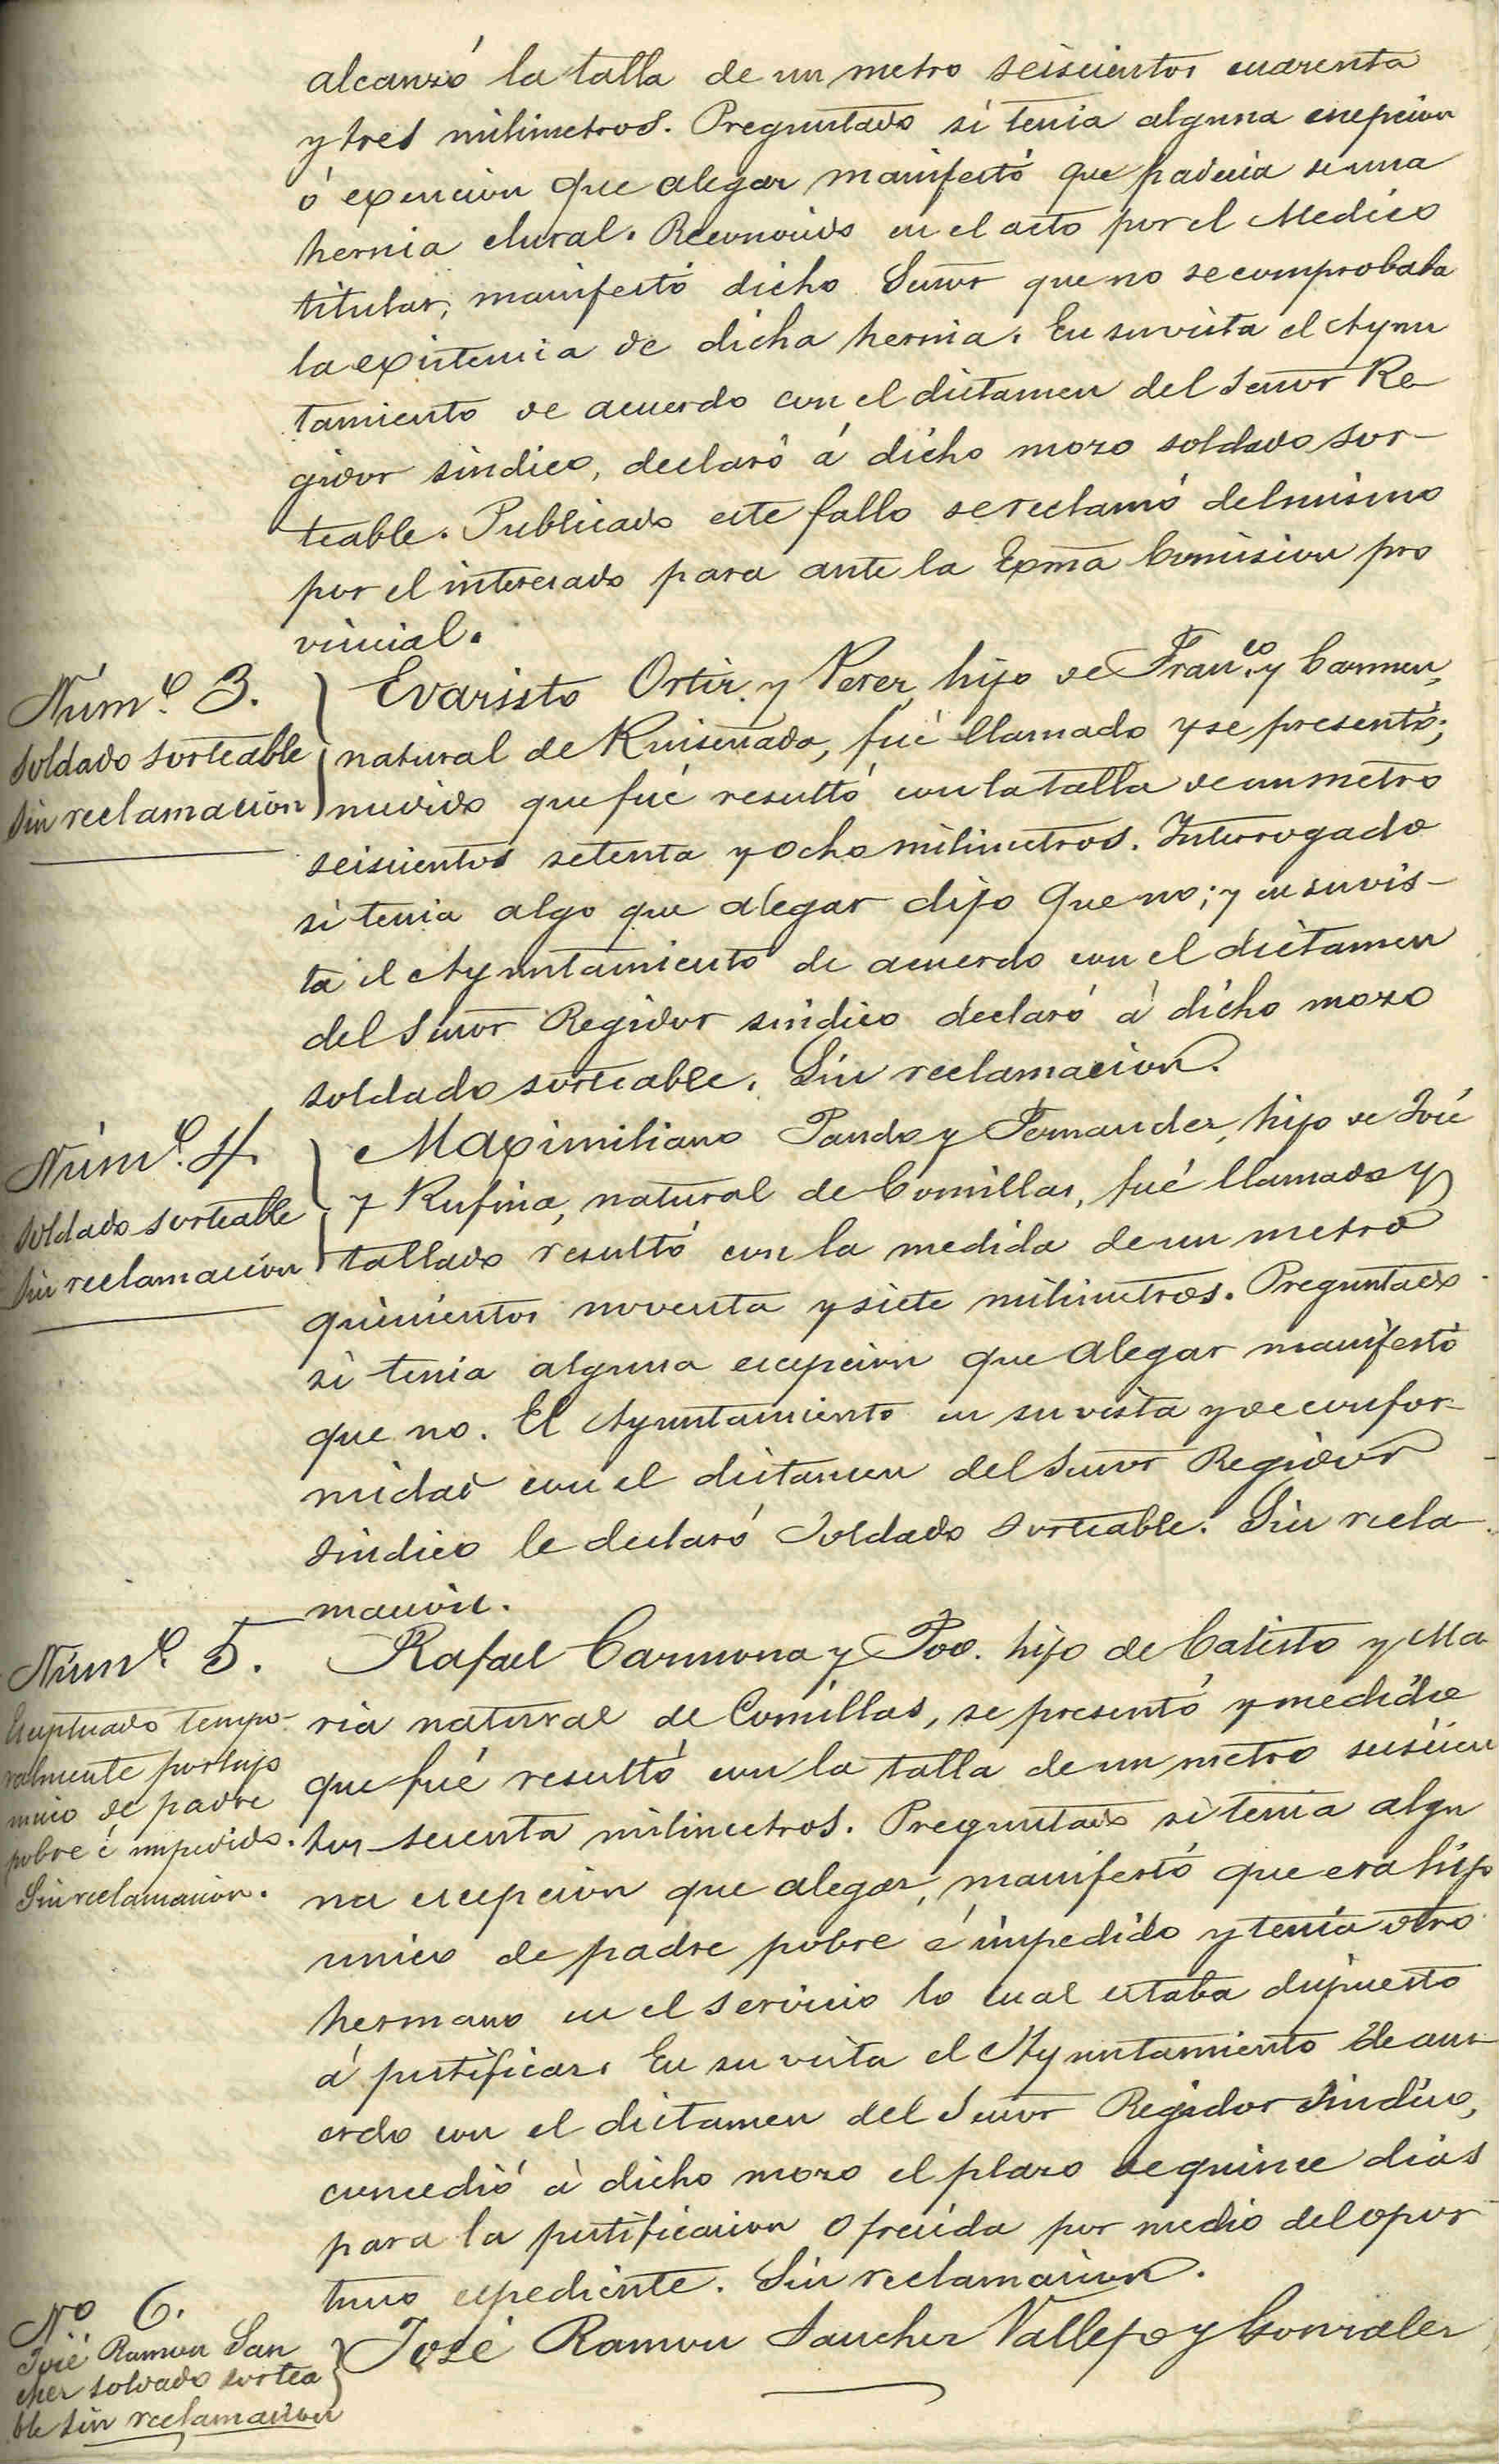 alcanzó la talla de un metro seiscientos cuarenta
y tres milimetros. Preguntado si tenia alguna escepcion
ó exencion que alegar manifestó que padecia de una
hernia clural. Reconocido en el acto por el Medico
titular, manifestó dicho Señor que no se comprobaba
la existencia de dicha hernia. En su vista el Ayun
tamiento de acuerdo con el dictamen del Señor Re-
gidor sindico, declaró á dicho mozo soldado sor-
teable. Publicado este fallo se reclamó del mismo
por el interesado para ante la Exma Comision pro
vincial.
Núm.º 3.
Soldado sorteable
Sin reclamacion
Evaristo Ortiz y Perez, hijo de Fran.co y Carmen,
natural de Ruiseñada, fué llamado y se presentó;
medido que fué resultó con la talla de un metro
seiscientos setenta y ocho milimetros. Interrogado
si tenia algo que alegar dijo que no; y en su vis-
ta el Ayuntamiento de acuerdo con el dictamen
del Señor Regidor sindico declaró á dicho mozo
soldado sorteable. Sin reclamacion.
Núm.º 4.
Soldado sorteable
Sin reclamacion
Maximiliano Pando y Fernandez, hijo de José
y Rufina, natural de Comillas, fué llamado y
tallado resultó con la medida de un metro
quinientos noventa y siete milimetros. Preguntado
si tenia alguna escepcion que alegar manifestó
que no. El Ayuntamiento en su vista y de confor-
midad con el dictamen del Señor Regidor
Sindico le declaró Soldado Sorteable. Sin recla-
macion.
Núm.º 5.
Esceptuado tempo-
ralmente por hijo
unico de padre
pobre é impedido.
Sin reclamacion.
Rafael Carmona y Poo. hijo de Calisto y Ma
ria natural de Comillas, se presentó y medido
que fué resultó con la talla de un metro seiscien
tos sesenta milimetros. Preguntado si tenia algu
na escepcion que alegar, manifestó que era hijo
unico de padre pobre é impedido y tenia otro
hermano en el servicio lo cual estaba dispuesto
á justificar. En su vista el Ayuntamiento de acu-
erdo con el dictamen del Señor Regidor Sindico,
concedió á dicho mozo el plazo de quince dias
para la justificacion ofrecida por medio del opor-
tuno espediente. Sin reclamacion.
Nº 6.
José Ramon San
chez soldado sortea
ble sin reclamacion
José Ramon Sanchez Vallejo y Gonzalez